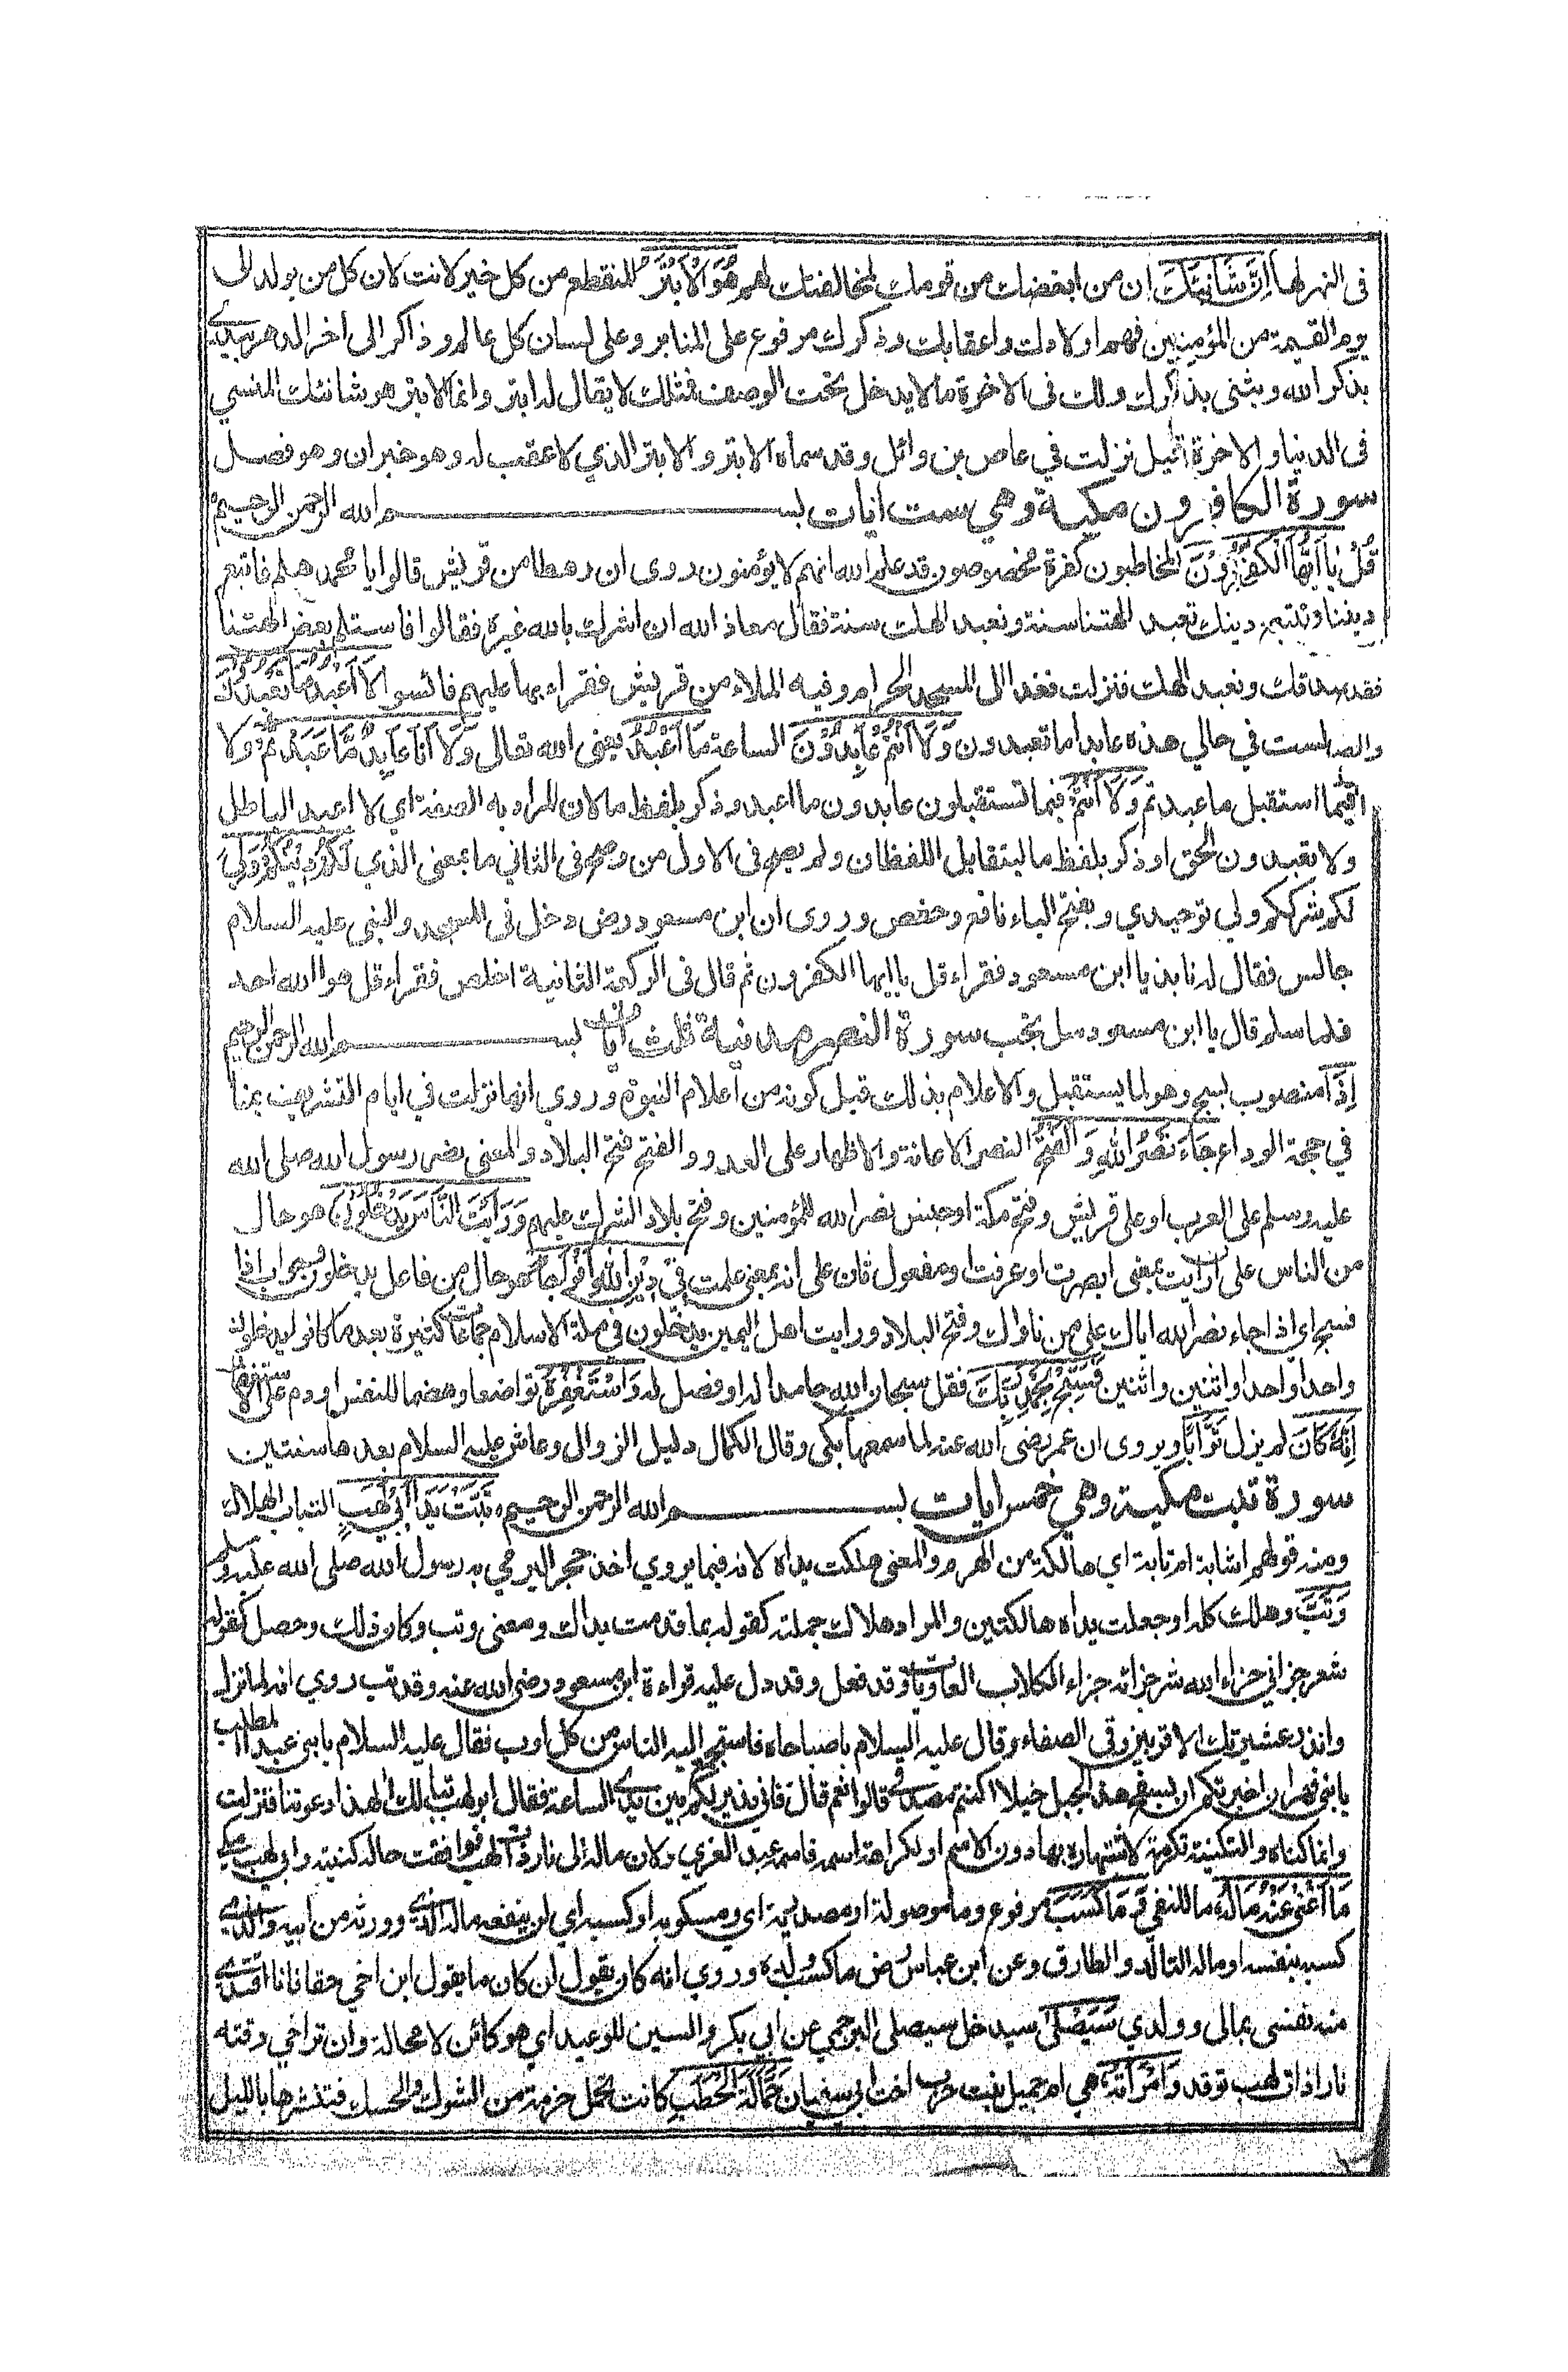 فى النحر لها اِنَّ شَانِئَكَ ان من ابغضك من قومك لمخالفتك لهم هُوَ الْاَبْتَرُ المنقطع من كل خير لا انت لان كل من يولد الى
يوم القيمة من المؤمنين فهم اولادك واعقابك وذكرك مرفوع على المنابر وعلى لسان كل عالم وذاكر الى اخر الدهر يبدئ
بذكر الله ويثنى بذكرك ولك فى الاخرة ما لا يدخل تحت الوصف فمثلك لا يقال له ابتر وانما الابتر هو شانئك المنسي
فى الدنيا والاخرة قيل نزلت في عاص بن وائل وقد سماه الابتر والابتر الذي لا عقب له وهو خبر ان وهو فصل
سورة الكافرون مكية وهي ست ايات بسم الله الرحمن الرحيم
قُلْ يٰاَيُّهَا الْكٰفِرُوْنَ المخاطبون كفرة مخصوصون قد علم الله انهم لا يؤمنون روى ان رهطا من قريش قالوا يا محمد هلم فاتبع
ديننا ونتبع دينك تعبد الهتنا سنة ونعبد الهك سنة فقال معاذ الله ان اشرك بالله غيره فقالوا فاستلم بعض الهتنا
نصدقك ونعبد الهك فنزلت فغدا الى المسجد الحرام وفيه الملاء من قريش فقراءها عليهم فائسوا لَا اَعْبُدُ مَا تَعْبُدُوْنَ
لست في حالي هذه عابدا ما تعبدون وَلَا اَنْتُمْ عٰبِدُوْنَ الساعة مَا اَعْبُدُ يعنى الله تعالى وَلَا اَنَا عَابِدٌ مَّا عَبَدْتُّمْ ولا
فيما استقبل ما عبدتم وَلَا اَنْتُمْ فيما تستقبلون عابدون ما اعبد وذكر بلفظ ما لان المراد به الصفة اي لا اعبد الباطل
ولا تعبدون الحق او ذكر بلفظ ما ليتقابل اللفظان ولم يصح فى الاول من وصح فى الثاني ما بمعنى الذي لَكُمْ دِيْنُكُمْ وَلِيَ
لكم شرككم ولي توحيدي وبفتح الياء نافع وحفص وروى ان ابن مسعود رض دخل فى المسجد والنبى عليه السلام
جالس فقال له نابذ يا ابن مسعود فقراء قل يا ايها الكفرون ثم قال فى الركعة الثانية اخلص فقراء قل هو الله احد
فلما سلم قال يا ابن مسعود سل تجب سورة النصر مدنية ثلث ايات بسم الله الرحمن الرحيم
اِذَا منصوب بسبح وهو لما يستقبل والاعلام بذلك قبل كونه من اعلام النبوة وروي انها نزلت في ايام التشريق بمنا
في حجة الوداع جَاءَ نَصْرُ اللّٰهِ وَالْفَتْحُ النصر الاعانة والاظهار على العدو والفتح فتح البلاد والمعنى نصر رسول الله صلى الله
عليه وسلم على العرب او على قريش وفتح مكة او جنس نصر الله للمؤمنين وفتح بلاد الشرك عليهم وَرَاَيْتَ النَّاسَ يَدْخُلُوْنَ هو حال
من الناس على ان رايت بمعنى ابصرت او عرفت او مفعول ثان على انه بمعنى علمت فِيْ دِيْنِ اللّٰهِ اَفْوَاجًا هو حال من فاعل يدخلون وجواب اذا
فسبح اي اذا جاء نصر الله اياك على من ناواك وفتح البلاد ورايت اهل اليمن يدخلون في ملة الاسلام جماعات كثيرة بعد ما كانوا يدخلون
واحدا واحدا واثنين واثنين فَسَبِّحْ بِحَمْدِ رَبِّكَ فقل سبحان الله حامدا له او فصل له وَاسْتَغْفِرْهُ تواضعا وهضما للنفس او دم على الاستغفار
اِنَّهٗ كَانَ لم يزل تَوَّابًا ويروى ان عمر رضى الله عنه لما سمعها بكى وقال الكمال دليل الزوال وعاش عليه السلام بعدها سنتين
سورة تبت مكية وهي خمس ايات بسم الله الرحمن الرحيم تَبَّتْ يَدَا اَبِيْ لَهَبٍ التباب الهلاك
ومنه قولهم اشابة ام تابة اي هالكة من الهرم والمعنى هلكت يداه لانه فيما يروي اخذ حجرا ليرمي به رسول الله صلى الله عليه وسلم
وَتَبَّ وهلك كله او جعلت يداه هالكتين والمراد هلاك جملته كقوله بما قدمت يداك ومعنى وتب وكان ذلك وحصل كقوله
شعر جزاني جزاء الله شر جزائه جزاء الكلاب العاويات وقد فعل وقد دل عليه قراءة ابن مسعود رضى الله عنه وقد تب روي انه لما نزل
وانذر عشيرتك الاقربين رقى الصفاء وقال عليه السلام يا صباحاه فاستجمع اليه الناس من كل اوب فقال عليه السلام يا بنى عبد المطلب
يا بنى فهر ان اخبرتكم ان بسفح هذا الجبل خيلا اكنتم مصدقى قالوا نعم قال فانى نذير لكم بين يدى الساعة فقال ابو لهب تبا لك الهذا دعوتنا فنزلت
وانما كناه والتكنية تكرمة لاشتهاره بها دون الاسم او لكراهة اسمه فاسمه عبد العزى ولان ماله الى نار ذات لهب فوافقت حاله كنيته وابى لهب مكي
مَا اَغْنٰى عَنْهُ مَالُهٗ ما للنفي وَمَا كَسَبَ مرفوع وما موصولة او مصدرية اي ومكسوبه او كسبه اي لم ينفعه ماله الذى وورثه من ابيه والذى
كسبه بنفسه او ماله التالد والطارق وعن ابن عباس رض ما كسب ولده وروي انه كان يقول ان كان ما يقول ابن اخي حقا فانا افتدى
منه نفسى بمالى وولدي سَيَصْلٰى سيدخل سيصلى البرجمي عن ابي بكر والسين للوعيد اي هو كائن لا محالة وان تراخي وقته
نارا ذات لهب توقد وَامْرَاَتُهٗ هي ام جميل بنت حرب اخت ابي سفيان حَمَّالَةَ الْحَطَبِ كانت تحمل حزمة من الشوك والحسك فتنثرها بالليل